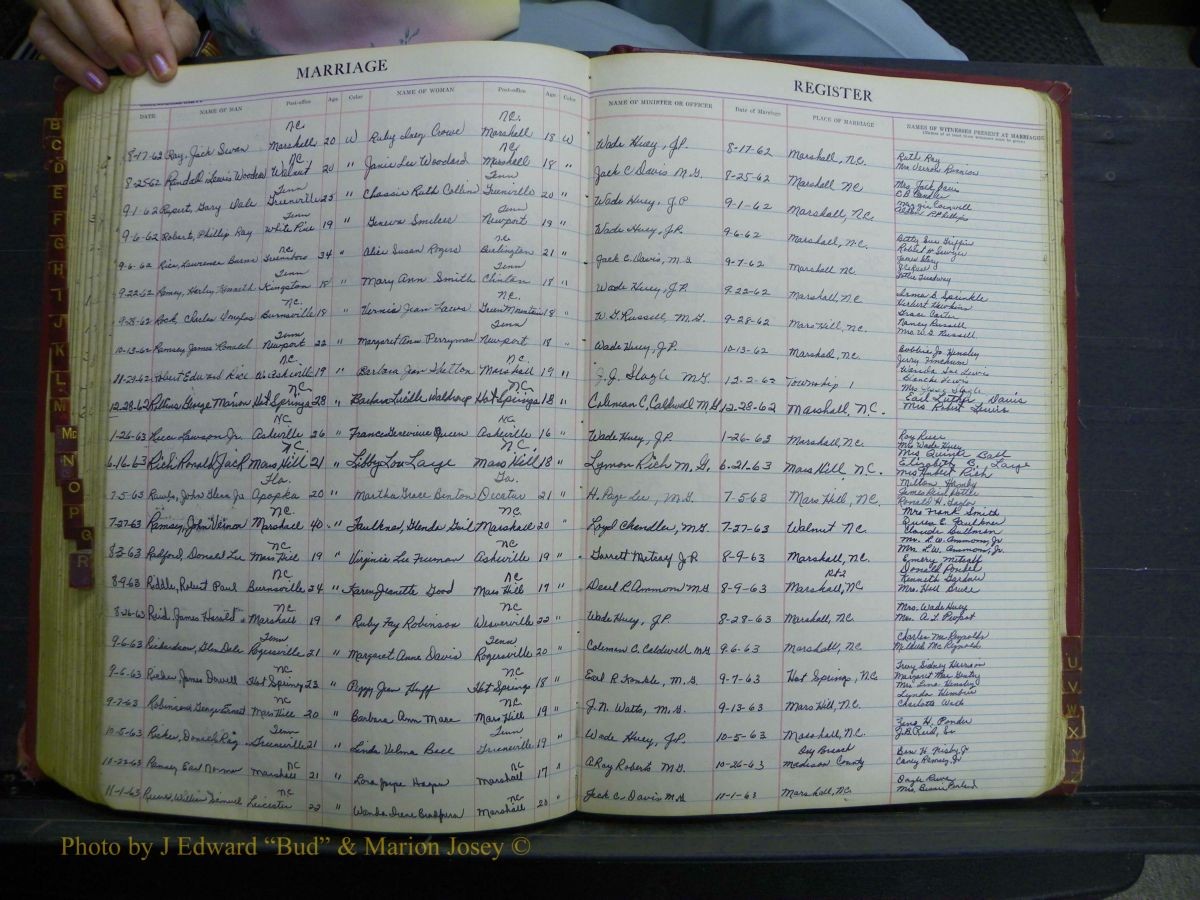 MARRIAGE REGISTER
DATE NAME OF MAN Post-office Age Color NAME OF WOMAN Post-office Age Color NAME OF MINISTER OR OFFICER Date of Marriage PLACE OF MARRIAGE NAMES OF WITNESSES PRESENT AT MARRIAGE
N.C. N.C.
8-17-62 Ray, Jack Swan Marshall 20 W Ruby Inez Crowe Marshall 18 W Wade Huey, J.P. 8-17-62 Marshall, N.C. Ruth Ray
Mrs Vernon Runnion
NC NC
8-25-62 Randall Lewis Woodson Walnut 20 " Janie Lee Woodard Marshall 18 " Jack C. Davis M.G. 8-25-62 Marshall NC Mrs. Jack Davis
C.B. Candler
Tenn Tenn
9-1-62 Rupert, Gary Dale Greenville 25 " Chassie Ruth Collin Greenville 20 " Wade Huey, J.P. 9-1-62 Marshall, N.C.
Tenn Tenn
9-6-62 Robert, Phillip Ray White Pine 19 " Geneva Smilcer Newport 19 " Wade Huey, J.P. 9-6-62 Marshall, N.C. Betty Sue Griffin
N.C. N.C.
9-6-62 Rice, Lawrence Burns Greensboro 24 " Alice Susan Rogers Burlington 21 " Jack C. Davis, M.G. 9-7-62 Marshall NC.
Tenn Tenn
9-22-62 Ramey, Harley Kenneth Kingston 18 " Mary Ann Smith Clinton 18 " Wade Huey, J.P. 9-22-62 Marshall, N.C. Irma B. Sprinkle
Herbert Hawkins
N.C. N.C.
9-28-62 Rock, Charles Douglas Burnsville 18 " Vernie Jean Laws Green Mountain 18 " W.G. Russell, M.G. 9-28-62 Mars Hill, N.C. Grace Carter
Nancy Russell
Mrs. W.G. Russell
Tenn Tenn
10-13-62 Ramsey, James Ronald Newport 22 " Margaret Ann Perryman Newport 18 " Wade Huey, J.P. 10-13-62 Marshall, N.C. Bobbie Jo Hensley
Jerry Finchum
N.C. N.C.
11-21-62 Robert Edward Rice W. Asheville 19 " Barbara Jean Metton Marshall 19 " J.J. Slagle M.G. 12-2-62 Township 1 Wanda Sue Lewis
Blanche Lewis
N.C. N.C.
12-28-62 Rollins George Marion Hot Springs 28 " Barbara Lucille Waldroup Hot Springs 18 " Coleman C. Caldwell M.G. 12-28-62 Marshall, N.C. Earl Luther Davis
Mrs Robert Lewis
NC NC
1-26-63 Rice Lawson Jr. Asheville 26 " France Genevieve Queen Asheville 16 " Wade Huey, J.P. 1-26-63 Marshall, N.C. Roy Rice
Mrs Wade Huey
N.C. N.C.
6-16-63 Rich Ronald Jack Mars Hill 21 " Libby Lou Large Mars Hill 18 " Lymon Rich M.G. 6-21-63 Mars Hill N.C. Mrs Quintle Ball
Elizabeth B. Large
Mrs Hubert Rich
Fla. Ga.
7-5-63 Rawls, John Glenn Jr Apopka 20 " Martha Grace Benton Decatur 21 " H. Page Lee, M.G. 7-5-63 Mars Hill, N.C. Milton Hornby
Ronald H. Taylor
N.C. N.C.
7-27-63 Ramsey, John Vernon Marshall 40 " Faulkner, Glenda Gail Marshall 20 " Loyd Chandler, M.G. 7-27-63 Walnut N.C. Mrs Frank Smith
Durea E. Faulkner
Claude Sullman
NC NC
8-3-63 Radford, Donald Lee Mars Hill 19 " Virginia Lee Freeman Asheville 19 " Garrett Metcalf J.P. 8-9-63 Marshall, N.C. Mr. L.W. Ammons, Jr
Mrs. L.W. Ammons, Jr.
Emery Metcalf
NC NC Rt 2
8-9-63 Riddle, Robert Paul Burnsville 24 " Karen Jeanette Good Mars Hill 19 " Dasel R. Ammons M.G. 8-9-63 Marshall, NC Donald Ponder
Kenneth Gardner
NC NC
8-26-63 Reid, James Harold Marshall 19 " Ruby Fay Robinson Weaverville 22 " Wade Huey, J.P. 8-28-63 Marshall, N.C. Mrs. Wade Huey
Mrs. A.L. Propst
Tenn Tenn
9-6-63 Richardson, Glen Dale Rogersville 21 " Margaret Anne Davis Rogersville 20 " Coleman C. Caldwell M.G. 9-6-63 Marshall, N.C. Charles McReynolds
Mildred McReynolds
NC NC
9-6-63 Ricker James Darrell Hot Springs 23 " Peggy Jean Huff Hot Springs 18 " Earl R. Tomblin, M.G. 9-7-63 Hot Springs, N.C. Troy Sidney Harrison
Margaret Mae Gentry
Mrs. Lena Hensley
NC NC
9-7-63 Robinson George Ernest Mars Hill 20 " Barbara Ann Mace Mars Hill 19 " J.N. Watts, M.G. 9-13-63 Mars Hill, N.C. Lynda Hembree
Charlotte Wade
Tenn Tenn
10-5-63 Ricker, Daniel Ray Greenville 21 " Linda Velma Ball Greenville 19 " Wade Huey, J.P. 10-5-63 Marshall, N.C. Zeno H. Ponder
J.B. Reid, Sr
NC NC Dry Branch
10-22-63 Ramsey Earl Norman Marshall 21 " Lora Joyce Harper Marshall 17 " A. Ray Roberts M.G. 10-26-63 Madison County Ben H. Frisby, Jr
Carey Ramsey, Jr.
NC NC
11-1-63 Reeves, William Samuel Leicester 22 " Wanda Irene Bradburn Marshall 20 " Jack C. Davis M.G. 11-1-63 Marshall, NC Doyle Reeves
B
C
D
E
F
G
H
I
J
K
L
M
Mc
N
O
P
Q
R
U
V
W
X
Y
Photo by J Edward "Bud" & Marion Josey ©